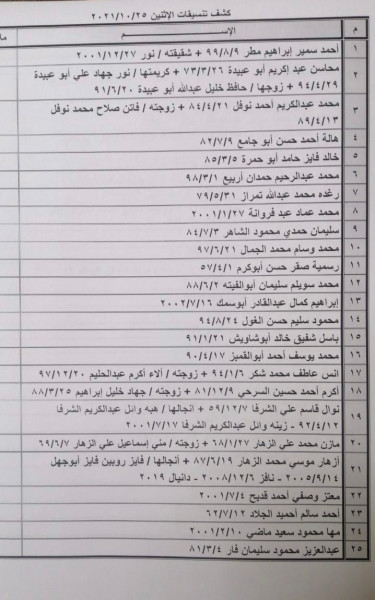 كشف تنسيقات الإثنين ٢٠٢١/١٠/٢٥
م الإســـــــم
١ أحمد سمير إبراهيم مطر ٩٩/٨/٩ + شقيقته / نور ٢٠٠١/١٢/٢٧
٢ محاسن عبد إكريم أبو عبيدة ٧٣/٣/٢٦ + كريمتها / نور جهاد علي أبو عبيدة
٩٤/٤/٢٩ + زوجها / حافظ خليل عبدالله أبو عبيدة ٩١/٦/٢٠
٣ محمد عبدالكريم أحمد نوفل ٨٤/٤/٢١ + زوجته / فاتن صلاح محمد نوفل
٨٩/٤/١٣
٤ هالة أحمد حسن أبو جامع ٨٢/٧/٩
٥ خالد فايز حامد أبو حمرة ٨٥/٣/٥
٦ محمد عبدالرحيم حمدان أربيع ٩٨/٣/١
٧ رغده محمد عبدالله تمراز ٧٩/٥/٣١
٨ محمد عماد عبد فروانة ٢٠٠١/١/٢٧
٩ سليمان حمدي محمود الشاهر ٨٤/٧/٣
١٠ محمد وسام محمد الجمال ٩٧/٦/٢١
١١ رسمية صقر حسن أبوكرم ٥٧/٤/١
١٢ محمد سويلم سليمان أبوالفيته ٨٨/٦/٢
١٣ إبراهيم كمال عبدالقادر أبوسمك ٢٠٠٢/٧/١٦
١٤ محمود سليم حسن الغول ٩٤/٨/٢٤
١٥ باسل شفيق خالد أبوشاويش ٩١/١/٢١
١٦ محمد يوسف أحمد أبوالقمبز ٩٠/٤/١٧
١٧ انس عاطف محمد شكر ٩٤/١/٦ + زوجته / آلاء أكرم عبدالحليم ٩٧/١٢/٢٠
١٨ أكرم أحمد حسين السرحي ٨١/١٢/٩ + زوجته / جهاد خليل إبراهيم ٨٨/٣/٢٥
١٩ نوال قاسم علي الشرفا ٥٩/١٢/٧ + انجالها / هبه وائل عبدالكريم الشرفا
٩٢/٤/١٢ - زينه وائل عبدالكريم الشرفا ٢٠٠١/٧/١٧
٢٠ مازن محمد علي الزهار ٦٨/١/٢٧ + زوجته / مني إسماعيل علي الزهار ٦٩/٦/٧
٢١ أزهار موسي محمد الزهار ٨٧/٦/١٩ + أنجالها / فايز روبين فايز أبوجهل
٢٠٠٥/٩/١٤ - نافز ٢٠٠٨/١٢/٦ - دانيال ٢٠١٩
٢٢ معتز وصفي أحمد قديح ٢٠٠١/٧/٤
٢٣ أحمد سالم أحميد الجلاد ٦٢/٧/١٢
٢٤ مها محمود سعيد ماضي ٢٠٠١/٢/١٠
٢٥ عبدالعزيز محمود سليمان فار ٨١/٣/٤